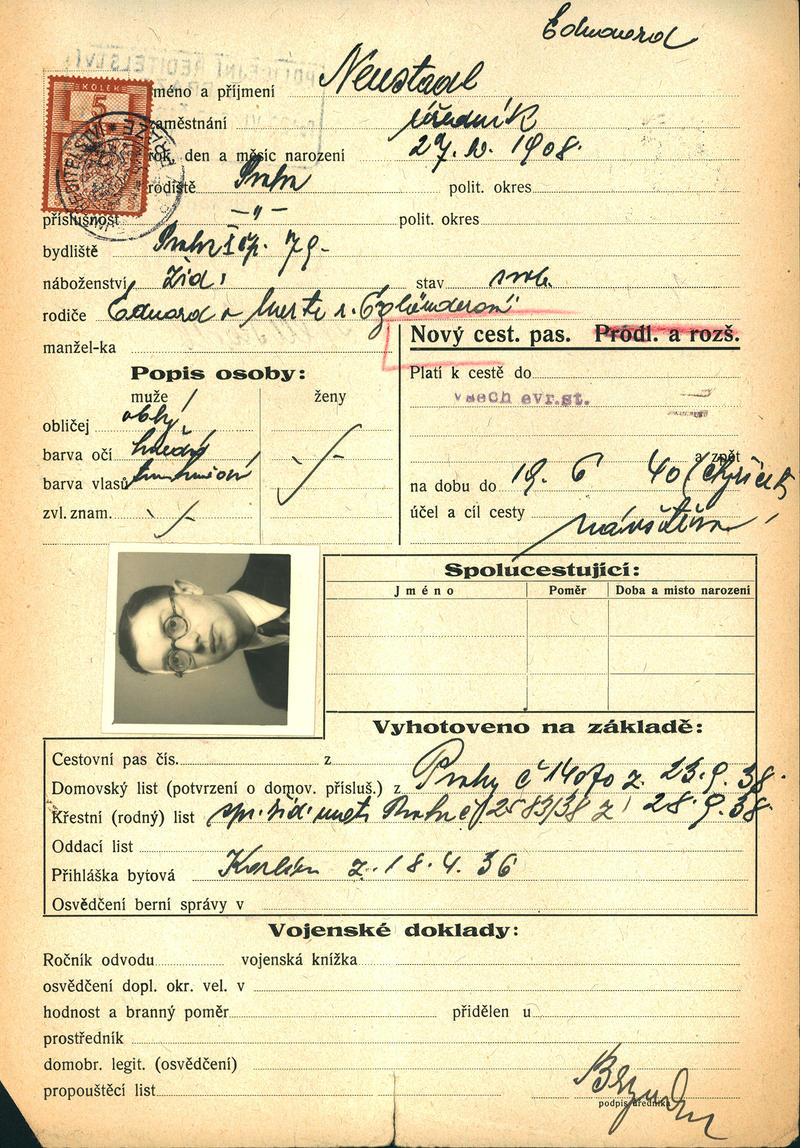 Edmund
méno a příjmení Neustadl
zaměstnání úředník
rok, den a měsíc narození 1908.
rodiště Praha polit. okres
příslušnost — " — polit. okres
bydliště Praha I čp. 79-
náboženství žid. stav svob.
rodiče Eduard a
manžel-ka
Nový cest. pas. Pródl. a rozš.
Popis osoby:
muže ženy
obličej oblý
barva očí hnědé
barva vlasů
zvl. znam.
Platí k cestě do
všech evr.st.
a zpět
na dobu do 19. 6 40 (čtyřicet)
účel a cíl cesty návštěva
KOLEK
5
Spolucestující:
Jméno Poměr Doba a místo narození
Vyhotoveno na základě:
Cestovní pas čís. z
Domovský list (potvrzení o domov. přísluš.) z Prahy č 14070 z. 23.9.38.
Křestní (rodný) list Praha č 2583/38 z 28.9.38.
Oddací list
Přihláška bytová Karlín z. 18.4.36
Osvědčení berní správy v
Vojenské doklady:
Ročník odvodu vojenská knížka
osvědčení dopl. okr. vel. v
hodnost a branný poměr přidělen u
prostředník
domobr. legit. (osvědčení)
propouštěcí list
podpis úředníka